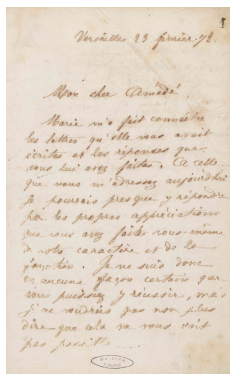 Versailles 23 février 72.
Mon cher Amédé.
Marie m'a fait connaitre
les lettres qu'elle vous avait
écrites et les réponses que
vous lui avez faites. A celle
que vous m'adressez aujourd'hui
Je pourrais presque y répondre
par les propres appréciations
que vous avez faites vous-même
de votre caractère et de la
fonction. Je ne suis donc
en aucune façon certain que
vous puissiez y réussir, mai
je ne voudrais pas non plus
dire que cela ne vous soit
pas possible